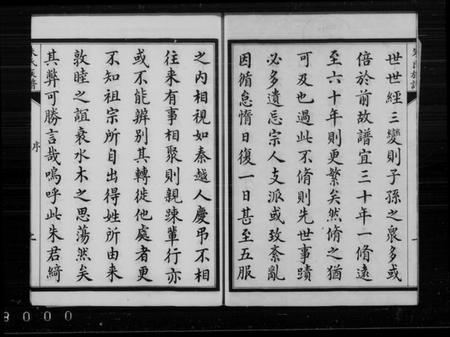 世世經三變則子孫之衆多或
倍於前故譜宜三十年一脩遠
至六十年則更繁矣然脩之猶
可及也過此不脩則先世事蹟
必多遺忘宗人支派或致紊亂
因循怠惰日復一日甚至五服
之内相視如秦越人慶弔不相
往来有事相聚則親踈輩行亦
或不能辨别其轉徙他處者更
不知祖宗所自出得姓所由来
敦睦之誼衰水木之思蕩然矣
其弊可勝言哉嗚呼此朱君綺
序
8000